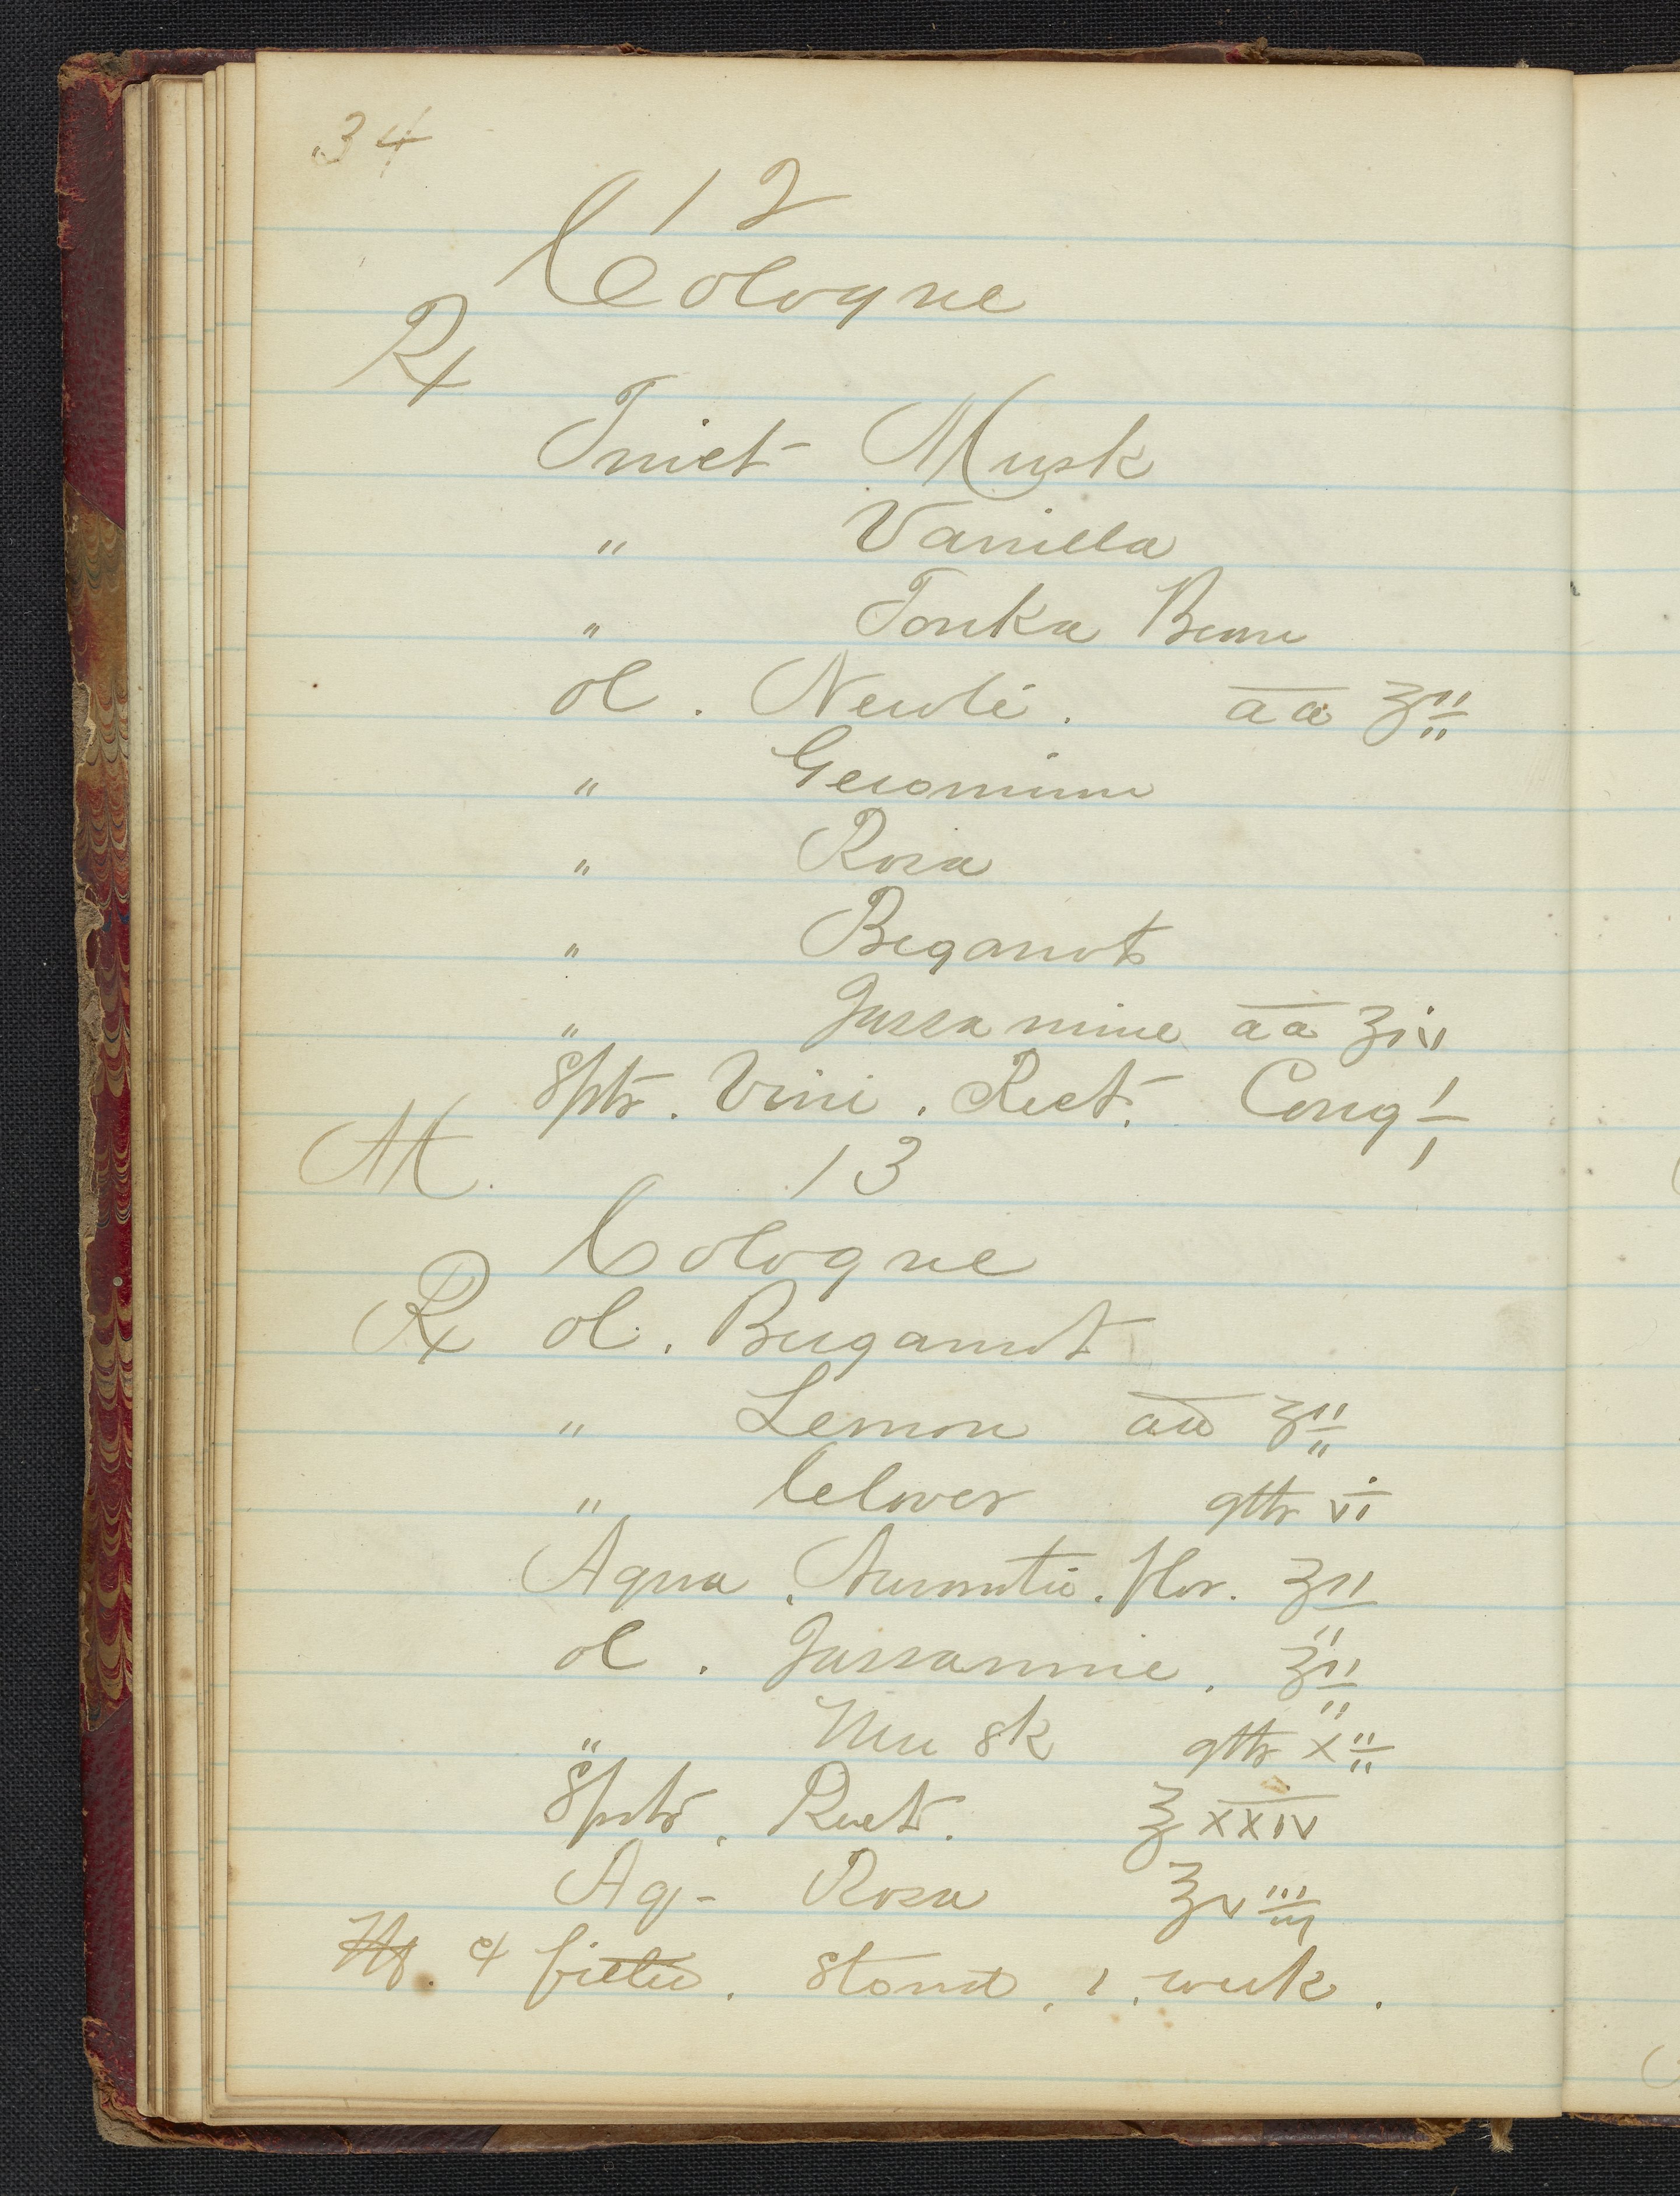 34
12
Cologne
Rx
Tinct Musk
" Vanilla
" Tonka Bean
ol. Neroli. aa ʒii
" Geranium
" Rosa
" Bergamot
" Jassamine aa ʒiv
Spts. Vini. Rect. Cong i
M. 13
Cologne
Rx ol. Bergamot
" Lemon aa ʒii
" Cloves gtts vi
Aqua. Aurantii. flor. ʒii
ol. Jassamine. ʒii
" Musk gtts xii
Spts. Rect. ℥xxiv
Aq- Rosa ℥viii
M. & filter. stand. 1. week.